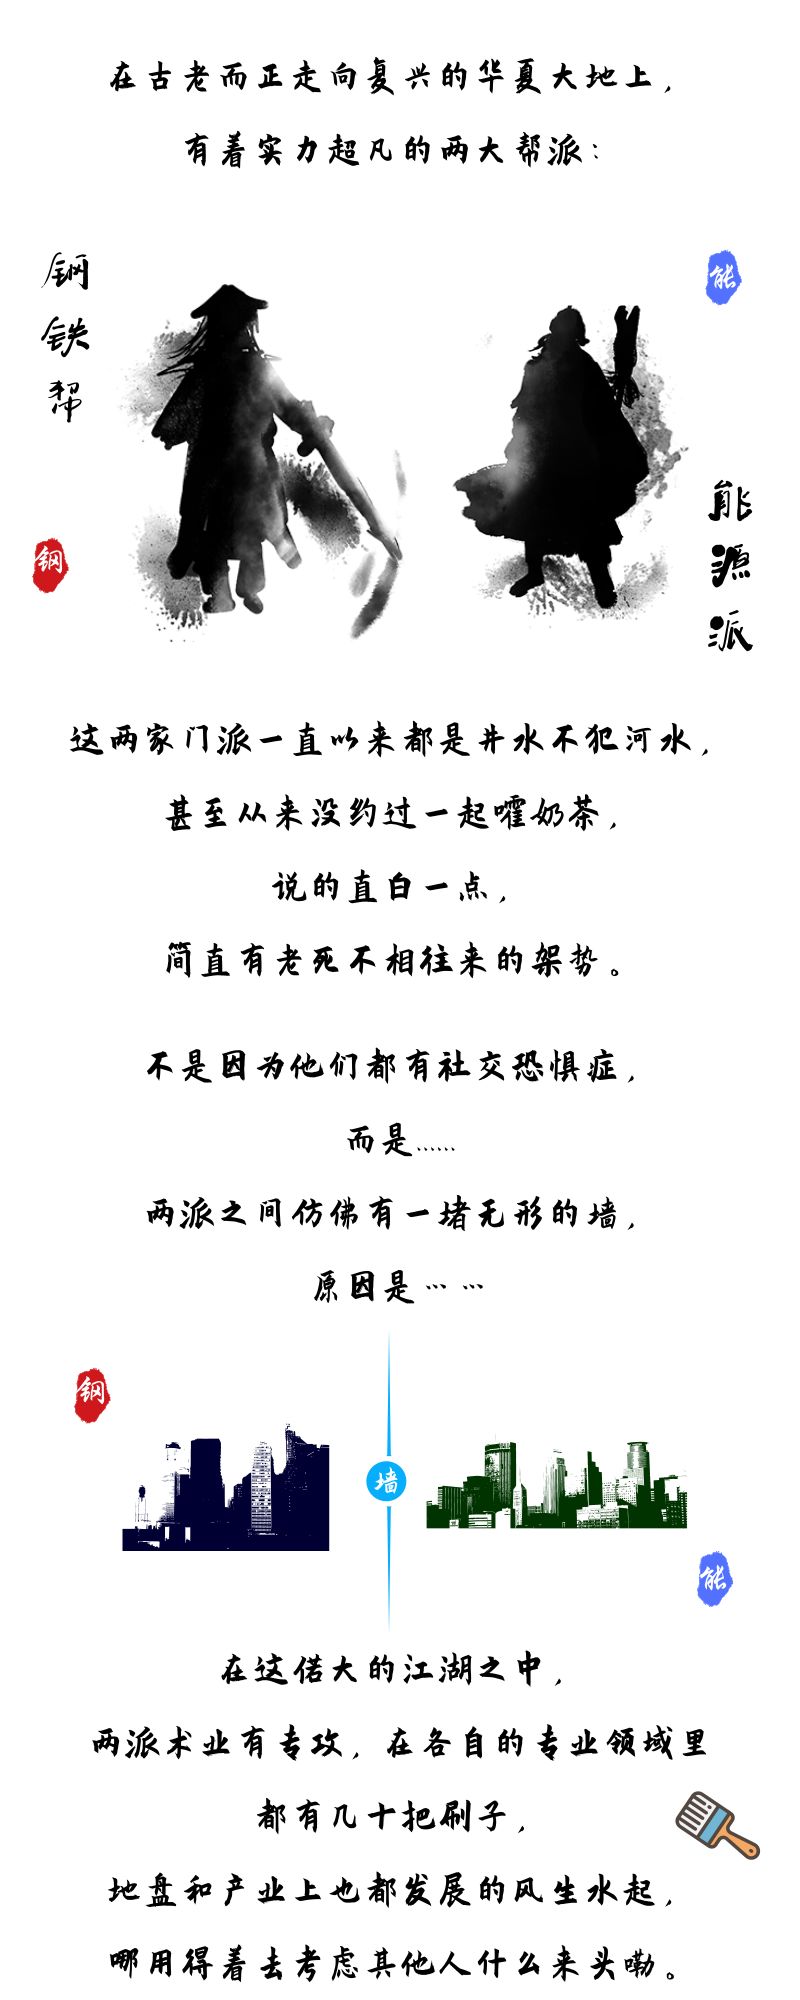 在古老而正走向复兴的华夏大地上，
有着实力超凡的两大帮派：
钢铁帮
能
钢
能源派
这两家门派一直以来都是井水不犯河水，
甚至从来没约过一起嚯奶茶，
说的直白一点，
简直有老死不相往来的架势。
不是因为他们都有社交恐惧症，
而是……
两派之间仿佛有一堵无形的墙，
原因是……
钢
墙
能
在这偌大的江湖之中，
两派术业有专攻，在各自的专业领域里
都有几十把刷子，
地盘和产业上也都发展的风生水起，
哪用得着去考虑其他人什么来头嘞。